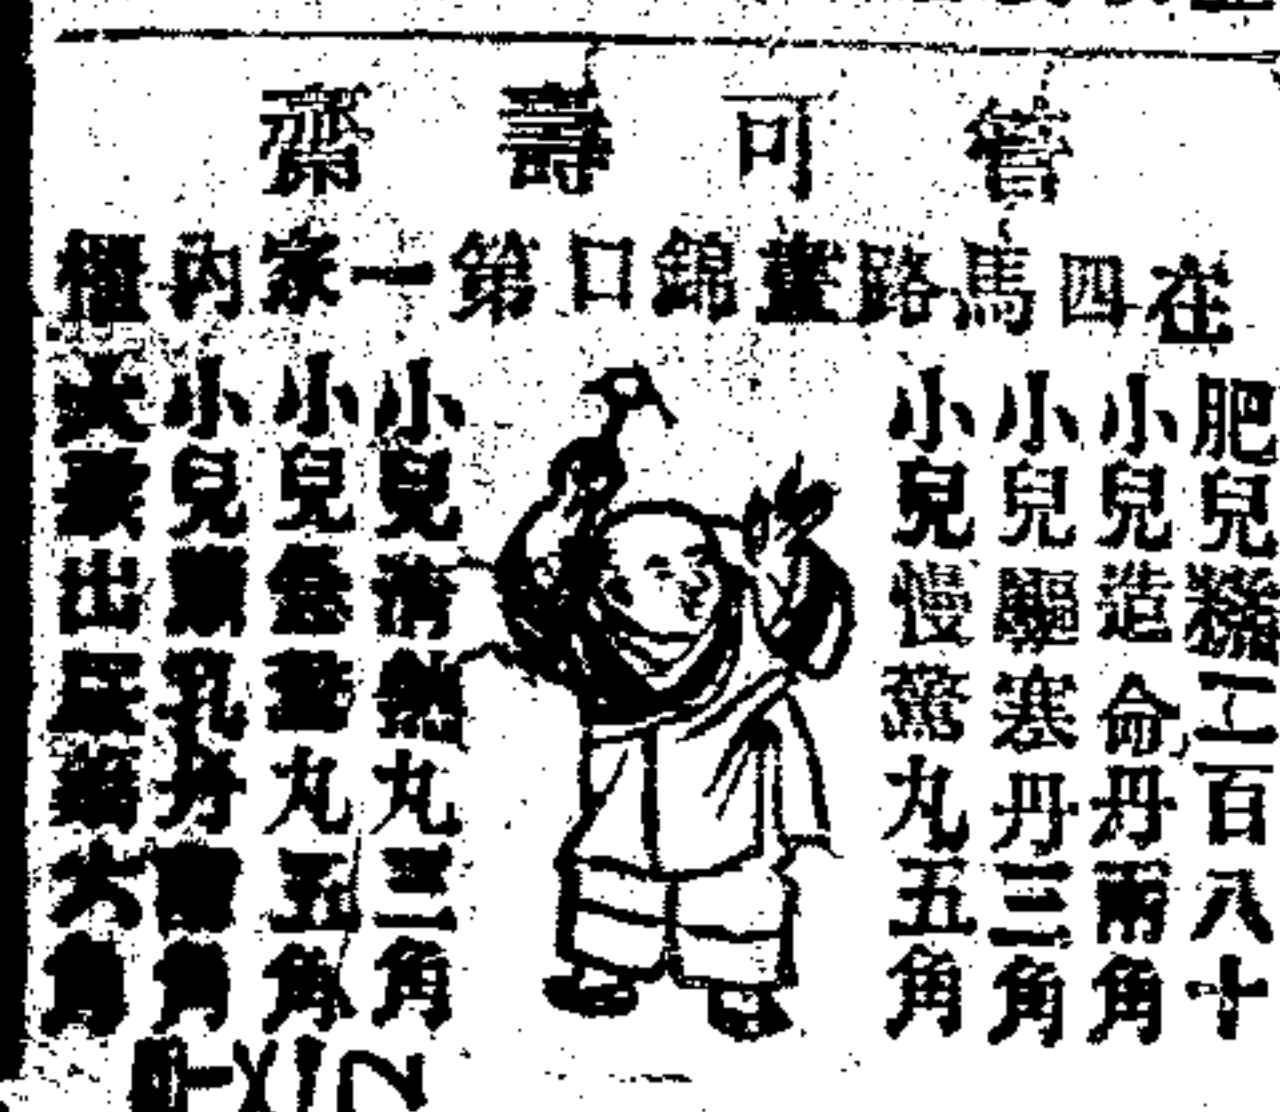 管可壽齋
在四馬路畫錦口第一家內
肥兒糕二百八十
小兒造命丹兩角
小兒驅寒丹三角
小兒慢驚丸五角
小兒清熱丸三角
小兒急驚丸五角
小兒 乳丹 角
大 出 六角